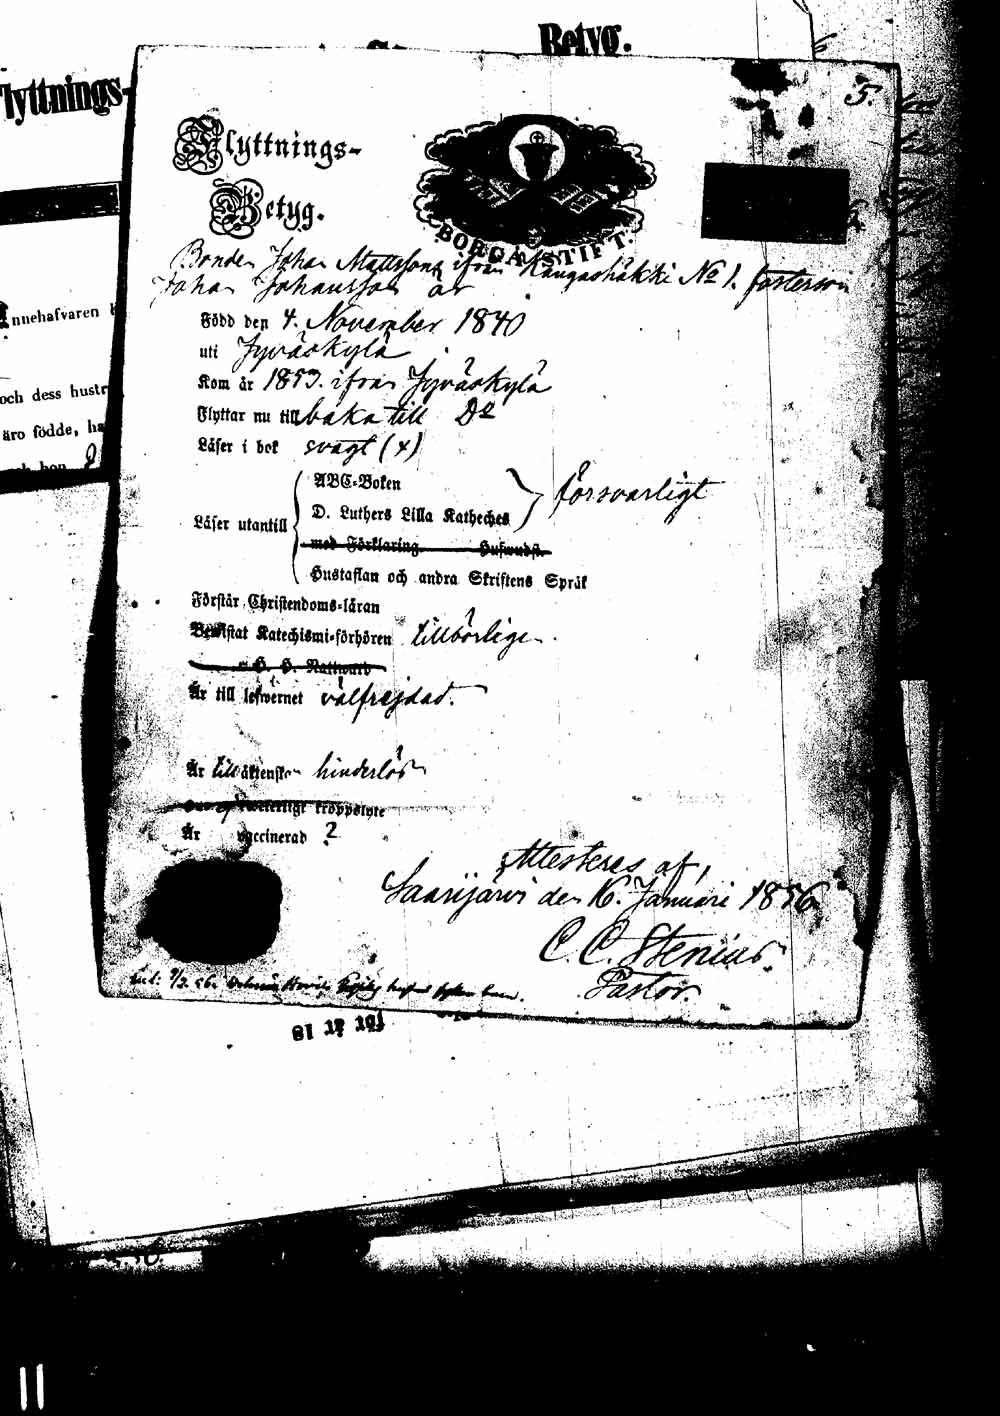 Betyg.
5.
Flyttnings-
Flyttnings-
Betyg.
BORGÅ STIFT.
Bonden Johan Mattssons ifrån Kangashäkki No 1. fosterson
Johan Johansson är
Född den 4. November 1840
uti Jyväskylä
Kom år 1853. ifrån Jyväskylä
Flyttar nu tillbaka till Do
Läser i bok svagt (x)
Läser utantill
ABC-Boken
D. Luthers Lilla Katheches
försvarligt
med Förklaring Hufwudst.
Hustaflan och andra Skriftens Språk
Förstår Christendoms-läran
Bewistat Katechismi-förhören tillbörligen.
H. H. Nattward
Är till lefwernet välfrejdad.
Är till äktenskap hinderlös
kroppslyte
Är vaccinerad ?
Attesteras af,
Saarijärvi den 16. Januari 1856.
C. C. Stenius.
Pastor.
Innehafvaren
och dess hustr
äro födde, ha
och hon
18
11